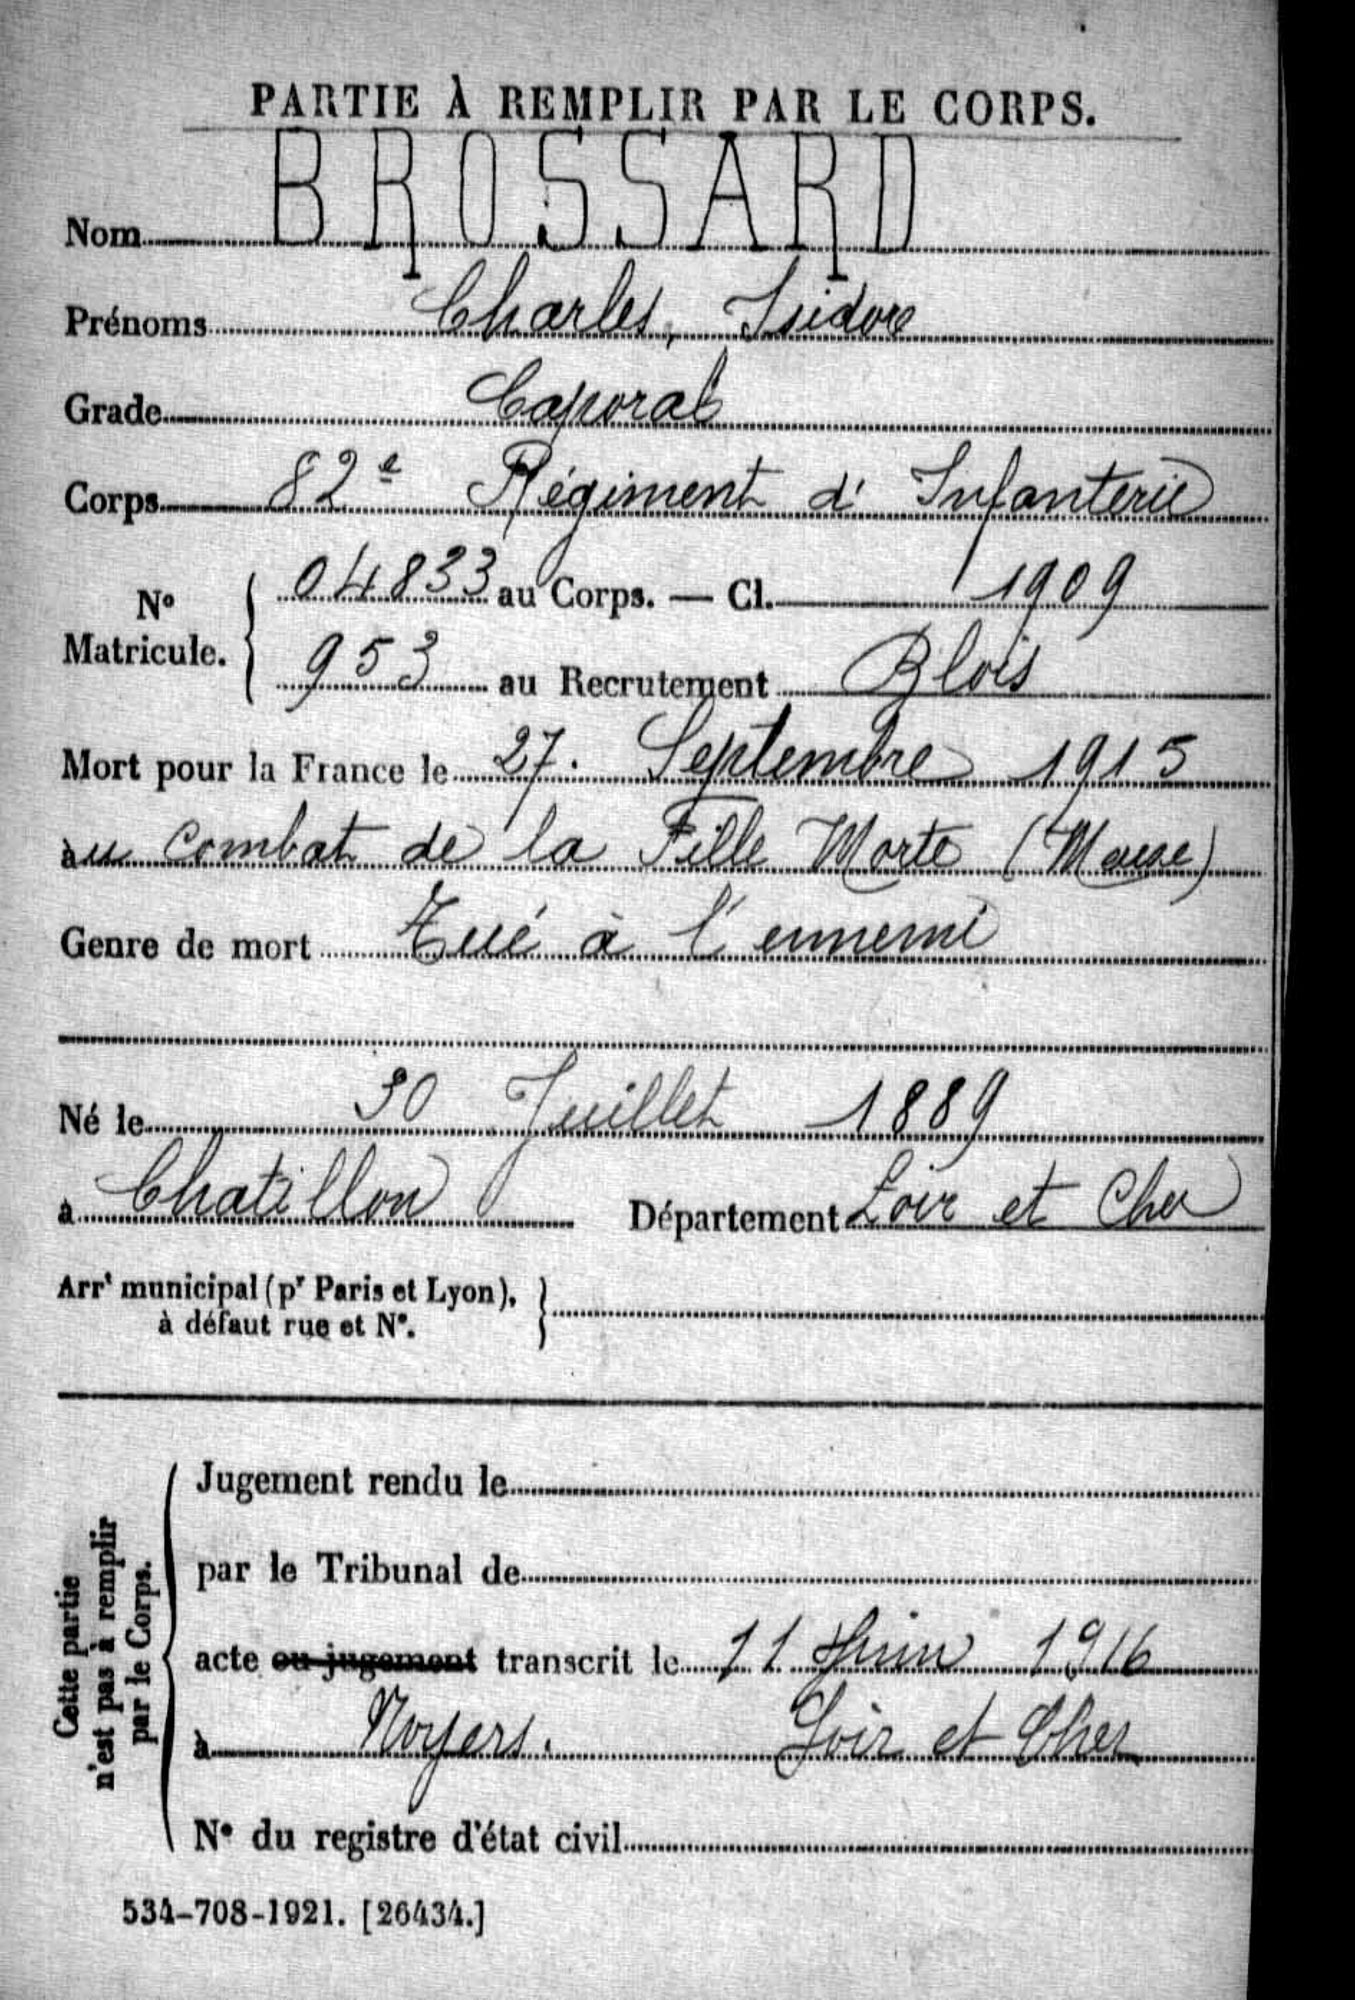 PARTIE À REMPLIR PAR LE CORPS.
Nom BROSSARD
Prénoms Charles, Isidore
Grade Caporal
Corps 82e Régiment d'Infanterie
No Matricule. { 04833 au Corps. — Cl. 1909
953 au Recrutement Blois
Mort pour la France le 27. Septembre 1915
au combat de la Fille Morte (Meuse)
Genre de mort Tué à l'ennemi
Né le 30 Juillet 1889
à Chatillon Département Loir et Cher
Arrt municipal (pr Paris et Lyon), }
à défaut rue et No.
Cette partie
n'est pas à remplir
par le Corps.
Jugement rendu le
par le Tribunal de
acte ou jugement transcrit le 11 Juin 1916
à Noyers. Loir et Cher
No du registre d'état civil
534-708-1921. [26434.]